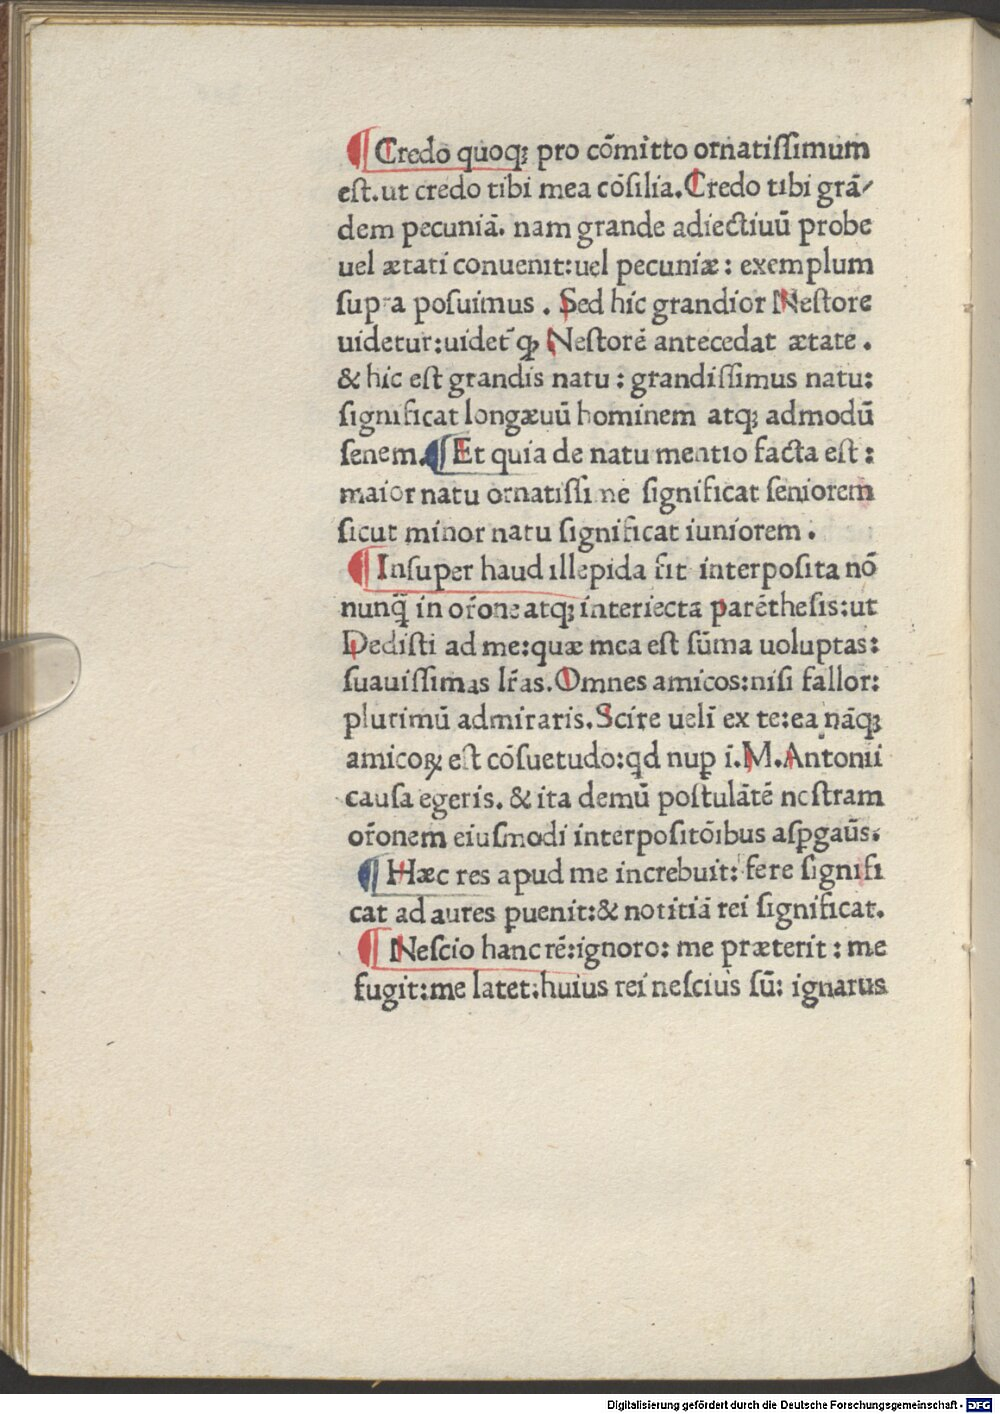 ¶ Credo quoqꝫ pro cōmitto ornatiſſimum
eſt.ut credo tibi mea cōſilia.Credo tibi grā⸗
dem pecuniā. nam grande adiectiuū probe
uel ætati conuenit:uel pecuniæ: exemplum
supra poſuimus . Sed hic grandior Neſtore
uidetur:uidet᷑ qꝫ Neſtorē antecedat ætate .
& hic eſt grandis natu : grandiſſimus natu:
ſignificat longæuū hominem atqꝫ admodū
ſenem.¶ Et quia de natu mentio facta eſt:
maior natu ornatiſſime ſignificat ſeniorem
ſicut minor natu ſignificat iuniorem .
¶ Inſuper haud illepida fit interpoſita nō
nunq̄ in or̄one atqꝫ interiecta parētheſis:ut
Dediſti ad me:quæ mea eſt sūma uoluptas:
ſuauiſſimas lr̄as.Omnes amicos:niſi fallor:
plurimū admiraris.Scire uelī ex te:ea nāqꝫ
amicoꝝ eſt cōſuetudo:qd nuꝑ ī.M.Antonii
cauſa egeris. & ita demū poſtulātē noſtram
or̄onem eiuſmodi interpoſitōibus aſꝑgaūs.
¶ Hæc res apud me increbuit: fere ſignifi
cat ad aures ꝑuenit:& notitiā rei ſignificat.
¶ Neſcio hanc rē:ignoro: me præterit : me
fugit:me latet:huius rei neſcius sū: ignarus
Digitalisierung gefördert durch die Deutsche Forschungsgemeinschaft - DFG